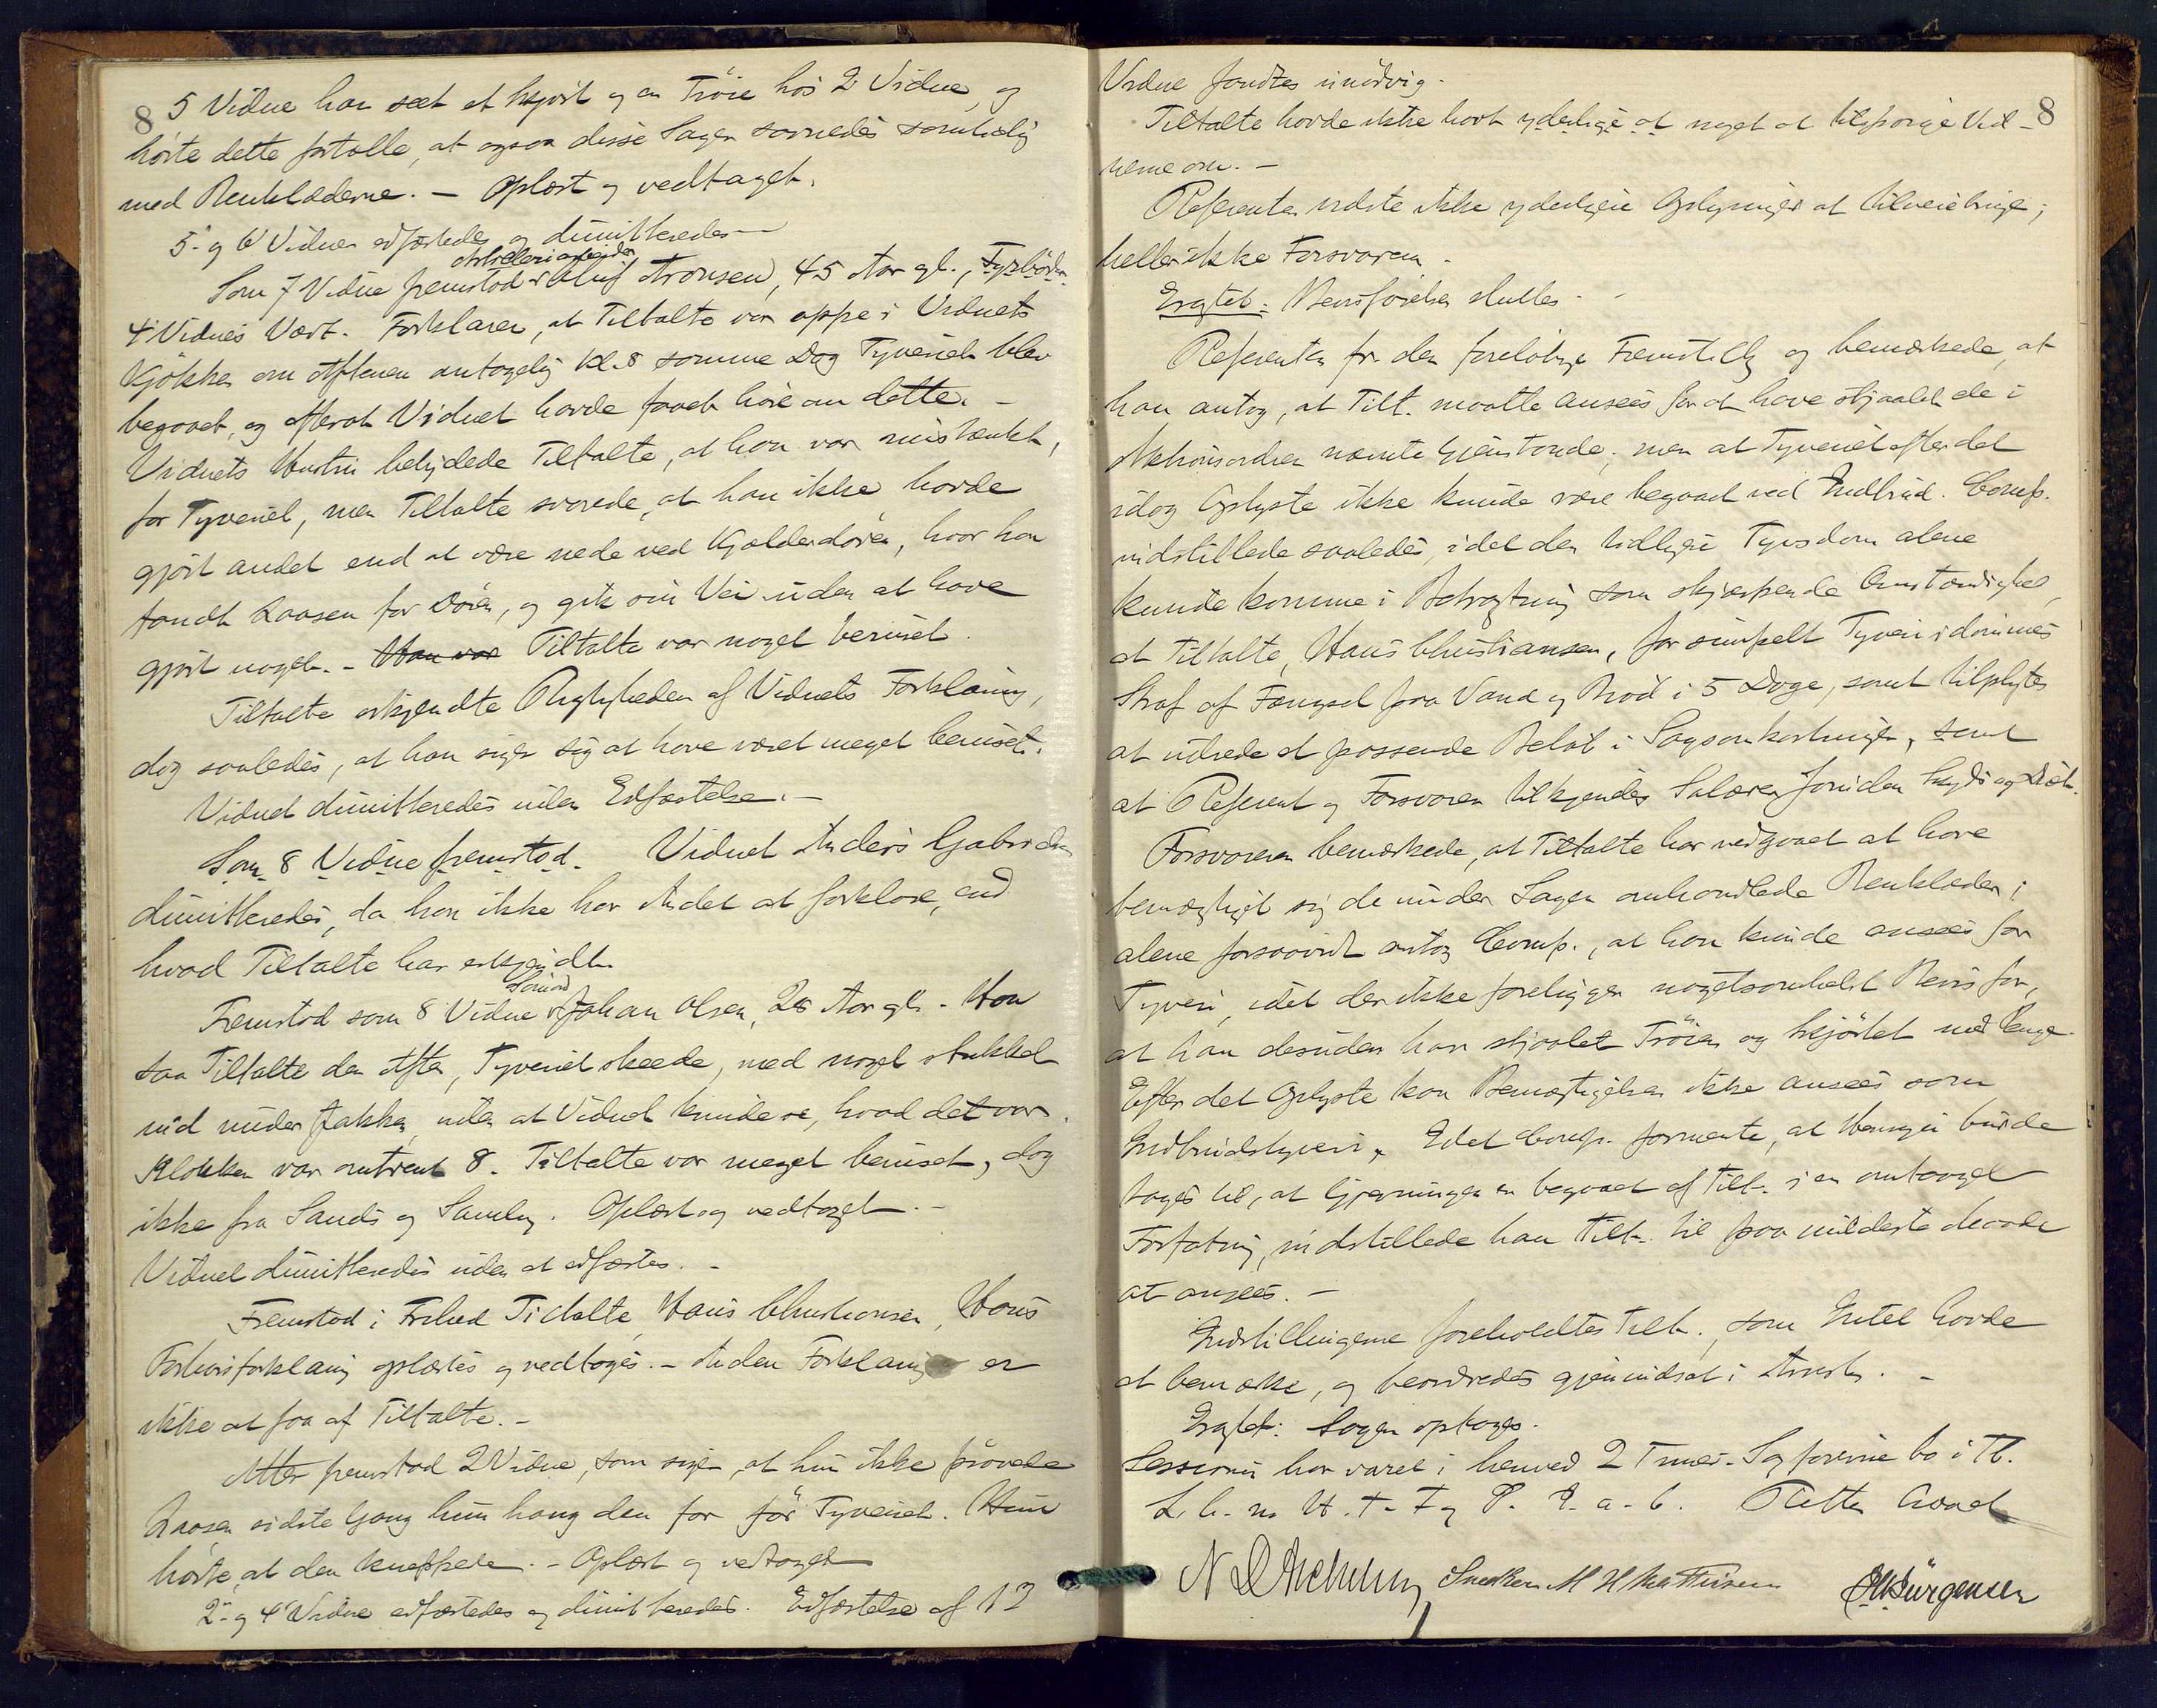 8 5 Vidne har seet et Skjört og en Tröie hos 2 Vidne, og
hörte dette fortælle, at ogsaa disse Sager savnedes samtidig
med Benklæderne. – Oplæst og vedtaget.
5. og 6 Vidner edfæstedes og dimitteredes –
Artilleriarbeider
Som 7 Vidne fremstod Oluf Aronsen, 45 Aar gl.,
4 Vidnes Vært. Forklarer, at Tiltalte var oppe i Vidnets
Kjökken om Aftenen antagelig Kl. 8 samme Dag Tyveriet blev
begaaet, og efterat Vidnet havde faaet höre om dette. –
Vidnets Hustru betydede Tiltalte, at han var mistænkt,
for Tyveriet, men Tiltalte svarede, at han ikke havde
gjört andet end at være nede ved Kjælderdören, hvor han
fandt Laasen for Dören, og gik sin Vei uden at have
gjört noget. – Han var Tiltalte var noget beruset.
Tiltalte erkjendte Rigtigheden af Vidnets Forklaring,
dog saaledes, at han siger sig at have været meget beruset.
Vidnet dimitteredes uden Edfæstelse. –
Som 8 Vidne fremstod. Vidnet Anders Gabrielsen
dimitteredes, da han ikke har Andet at forklare, end
hvad Tiltalte har erkjendt.
Sömand
Fremstod som 8 Vidne Johan Olsen, 28 Aar gl. – Han
saa Tiltalte den Aften, Tyveriet skeede, med noget stukket
ind under Jakken, uden at Vidnet kunde se, hvad det var.
Klokken var omtrent 8. Tiltalte var meget beruset, dog
ikke fra Sands og Samling. Oplæst og vedtaget. –
Vidnet dimitteredes uden at edfæstes. –
Fremstod i Frihed Tiltalte Hans Christiansen, Hans
Forhörsforklaring oplæstes og vedtoges. – Anden Forklaring er
ikke at faa af Tiltalte. –
Atter fremstod 2 Vidne, som siger, at hun ikke prövede
Laasen sidste Gang hun hang den for för Tyveriet. Hun
hörte, at den kneppede. – Oplæst og vedtaget
2. og 4 Vidne edfæstedes og dimitteredes. Edfæstelse af 1 3
Vidne fandtes unödvig.
Tiltalte havde ikke havt yderligere at noget at tilspörge Vid- 8
nerne om. –
Referenten vidste ikke yderligere Oplysninger at tilveiebringe;
heller ikke Forsvaren.
Eragtet: Bevisförelsen sluttes. –
Referenten fr. den foreløbige Fremstilling og bemærkede, at
han antog, at Tilt. maatte ansees for at have stjaalet de i
Aktionsordren nævnte Gjenstande; men at Tyveriet efter det
idag Oplyste ikke kunde være begaaet ved Indbrud. Comp.
indstillede saaledes, idet den tidligere Tyvsdom alene
kunde komme i Betragtning som skjærpende Omstændighed,
at Tiltalte, Hans Christiansen, for simpelt Tyveri idömmes
Straf af Fængsel paa Vand og Bröd i 5 Dage, samt tilpligtes
at udrede et passende Belöb i Sagsomkostninger, samt
at Referent og Forsvaren tilkjendes Salærer foruden Skyds og Diæt.
Forsvareren bemærkede, at Tiltalte har vedgaaet at have
bemægtiget sig de under Sagen omhandlede Benklæder;
alene forsaavidt antog Comp., at han kunde ansees for
Tyveri, idet der ikke foreligger nogetsomhelst Bevis for,
at han desuden har stjaalet Tröien og Skjörtet med Penge.
Efter det Oplyste kan Bemægtigelsen ikke ansees som
Indbrudstyveri. Idet Comp. formente, at Hensyn burde
tages til, at Gjerningen er begaaet af Tilt. i en omtaaget
Forfatning, indstillede han Tilt. til paa mildeste Maade
at ansees. –
Indstillingerne foreholdtes Tilt., som Intet havde
at bemærke, og beordredes gjenindsat i Arrest. –
Eragtet: Sagen optages.
Sessionen har varet i henved 2 Timer.
Retten hævet